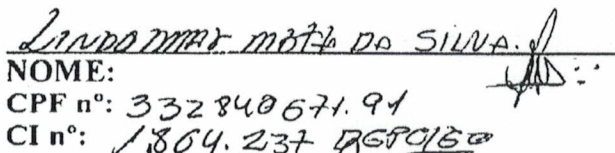 LINDOMAR MOTA DA SILVA.
NOME:
CPF nº: 332840671.91
CI nº: 1,864.237